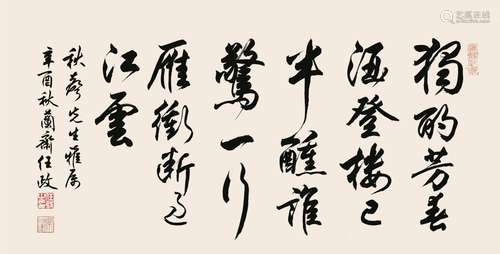 獨酌芳春
酒登樓已
半醺誰
驚一行
雁衝斷過
江雲
秋 先生雅属
辛酉秋蘭齋任政